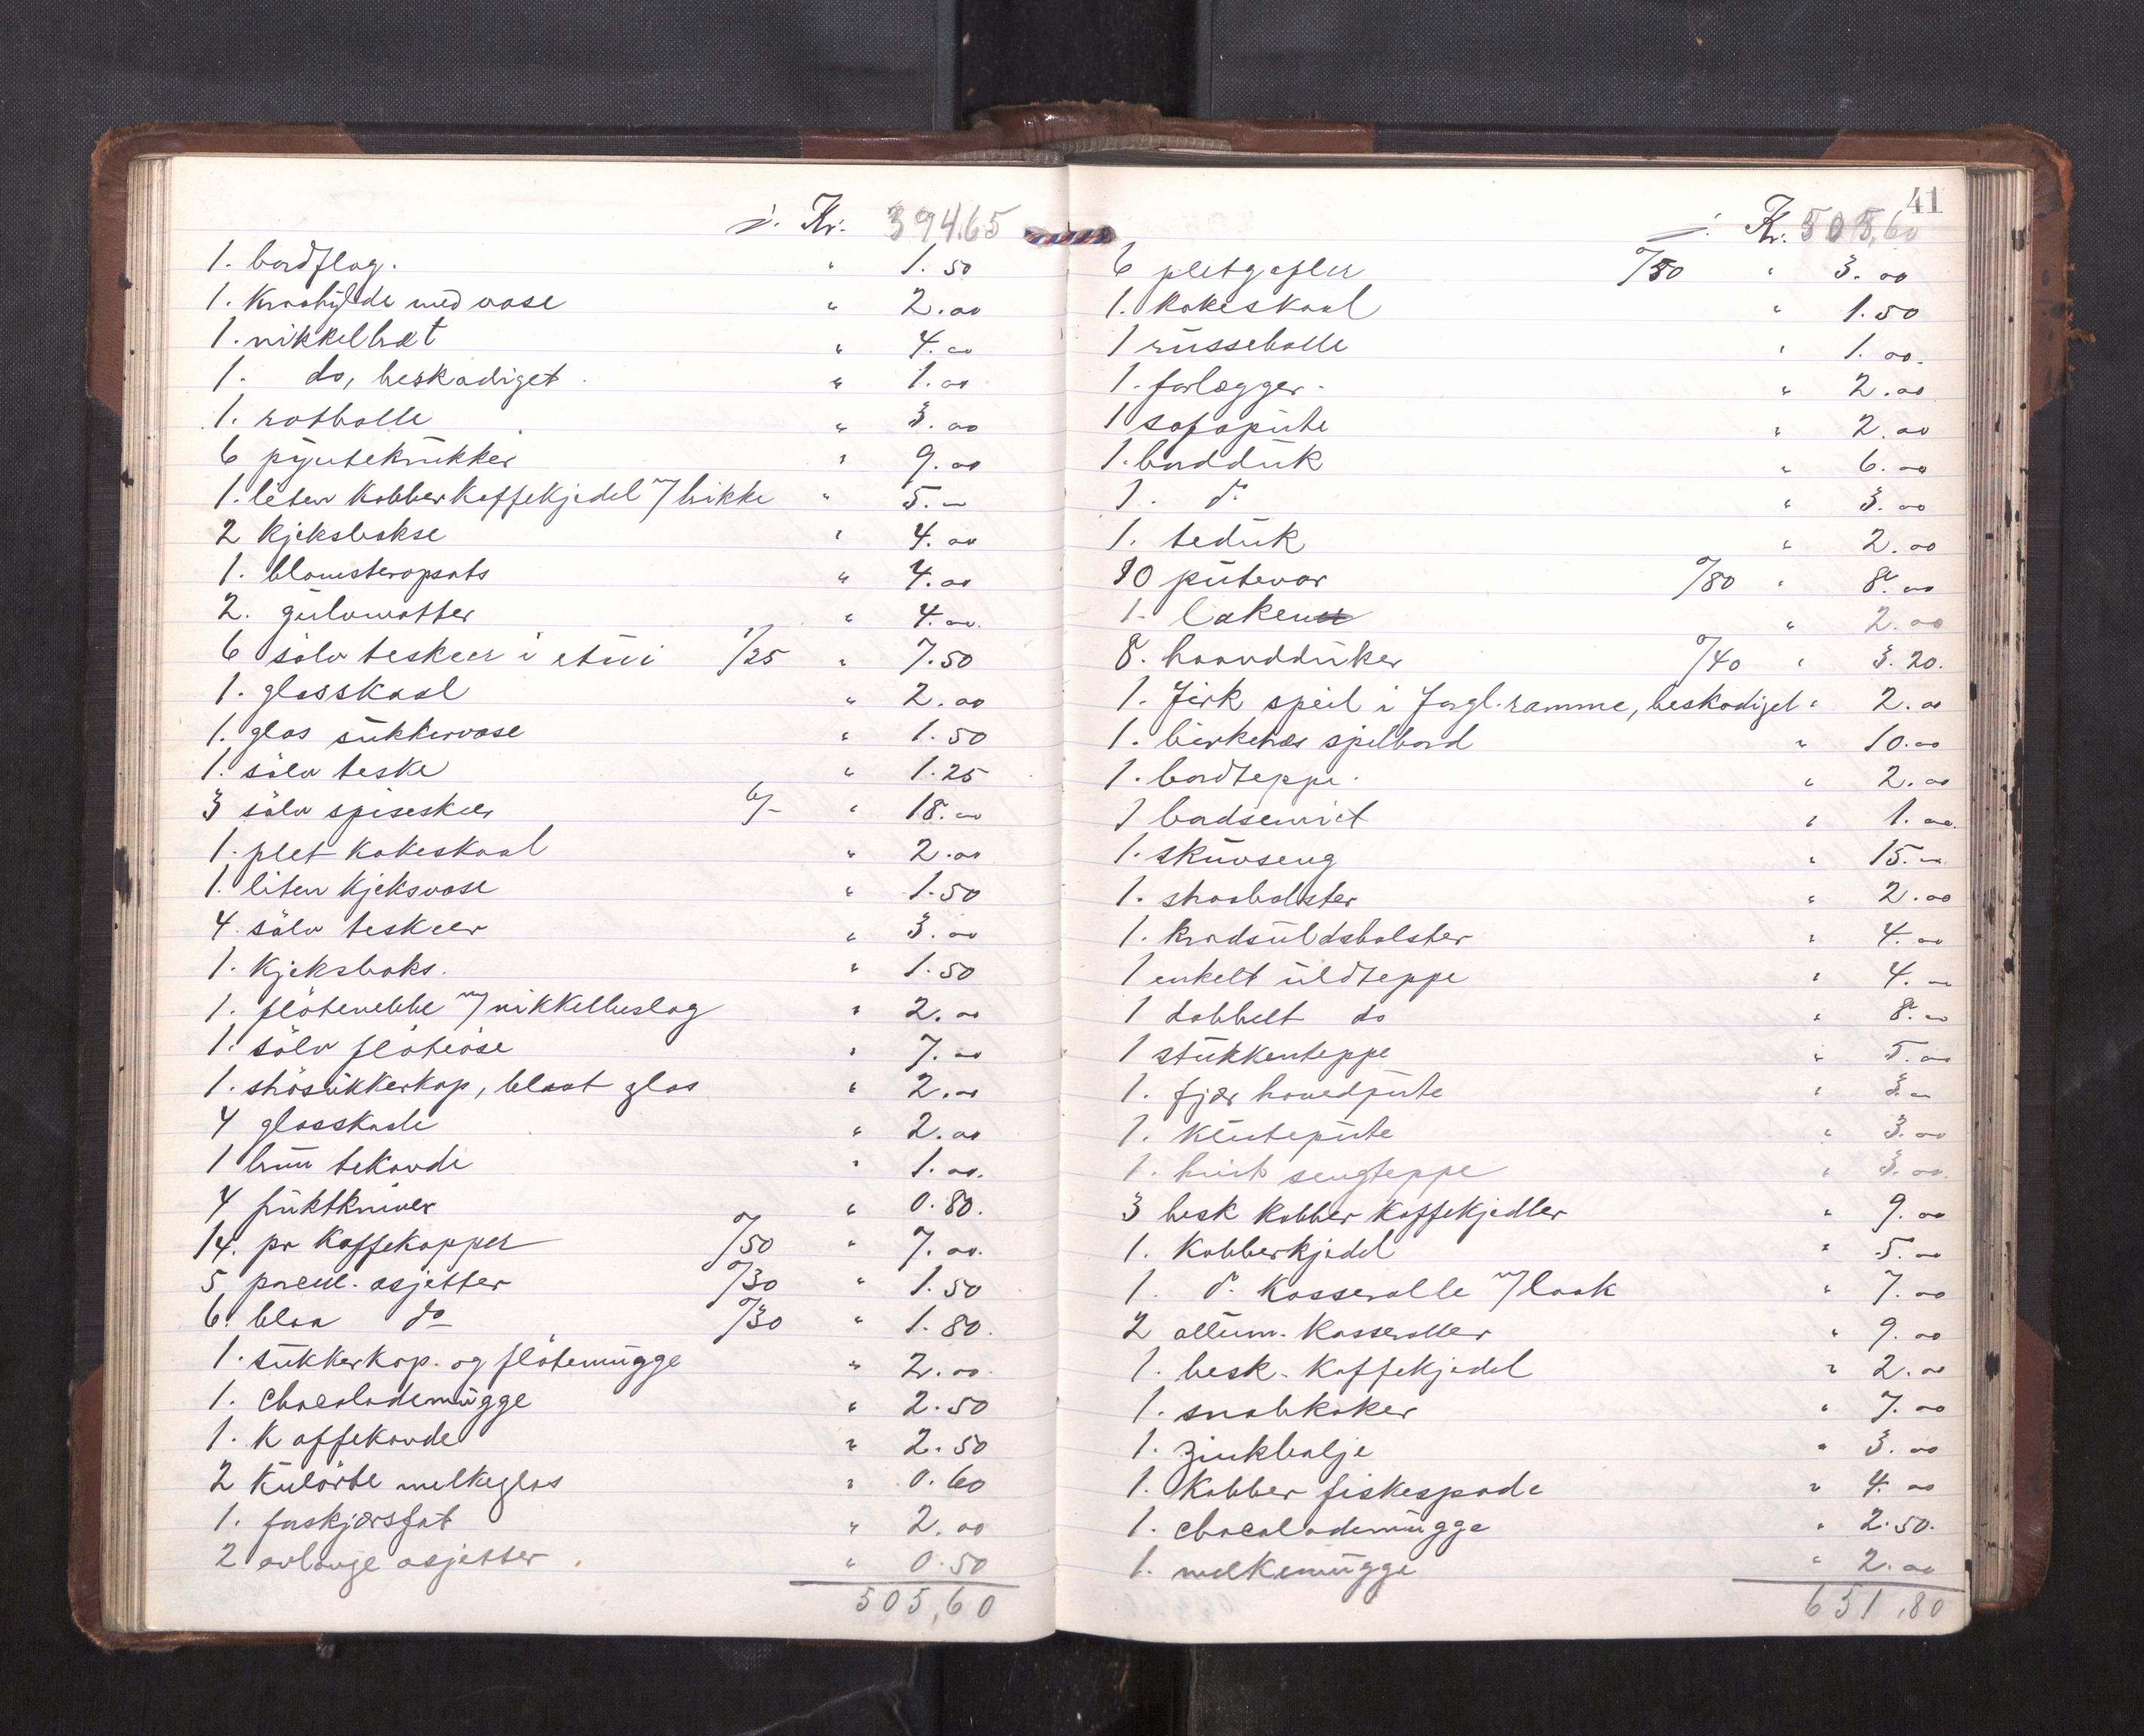 Kr. 394.65
1. bordflag. " 1.50
1. Kraahylde med vase " 2.00
1. nikkelbræt " 4.00
1. do, beskadiget " 1.00
1. rotbolle " 3.00
6 pyntekrukker " 9.00
1. liten Kobberkaffekjedel m/ brikke " 5.-
2 Kjeksbokse " 4.00
1. blomsteropsats " 4.00
2. gulvmatter " 4.00
6 sölv teskeer i etui 1/25 " 7.50
1. glasskaal " 2.00
1. glas sukkervase " 1.50
1. sölv teske " 1.25
3 sölv spiseskeer 6/- " 18.00
1. plet Kakeskaal " 2.00
1. liten Kjeksvase " 1.50
4 sölv teskeer " 3.00
1. Kjeksboks. " 1.50
1. flötenebbe m/ nikkelbeslag " 2.00
1. sölv flöteöse " 7.00
1. strösukkerkop, blaat glas " 2.00
4 glasskaale " 2.00
1 brun tekande " 1.00.
4 fruktkniver " 0.80.
14. pr Kaffekopper 0/50 " 7.00.
5 porcel. asjetter 0/30 " 1.50
6. blaa do 0/30 " 1.80.
1. sukkerkop. og flötemugge " 2.00
1. chocolademugge " 2.50
1. Kaffekande " 2.50
2 Kulörte melkeglas " 0.60
1. forskjærsfat " 2.00
2 avlange asjetter " 0.50
505,60
41
Kr. 505,60
6 pletgafler 0/50 " 3.00
1. Kakeskaal " 1.50
1 russebolle " 1.00.
1. forlægger. " 2.00
1 sofapute " 2.00
1. bordduk " 6.00
1. do " 3.00
1. teduk " 2.00
10 putevar 0/80 " 8.00
1. laken " 2.00
8. haandduker 0/40 " 3.20.
1. firk speil i forgl. ramme, beskadiget " 2.00
1. birketræs spilbord " 10.00
1. bordteppe. " 2.00
1 " 1.00.
1. skuvseng " 15.00
1. straabolster " 2.00
1. Kradsuldsbolster " 4.00
1 enkelt uldteppe " 4.00
1 dobbelt do " 8.00
1 stukkenteppe " 5.00
1. fjær hovedpute " 3.00
1. Kluntepute " 3.00
1. hvit sengteppe " 3.00.
3 besk Kobber Kaffekjedler " 9.00
1. Kobberkjedel " 5.00
1. do Kasserolle m/ laak " 7.00
2 allum. Kasseroller " 9.00
1. besk. Kaffekjedel " 2.00
1. snabkoker " 7.00
1. zinkbalje " 3.00
1. Kobber fiskespade " 4.00
1. chocolademugge " 2.50.
1. melkemugge " 2.00
651,80